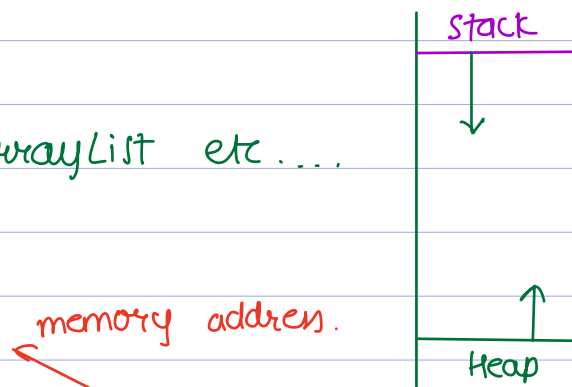 stack
arrayList etc....
memory address.
Heap